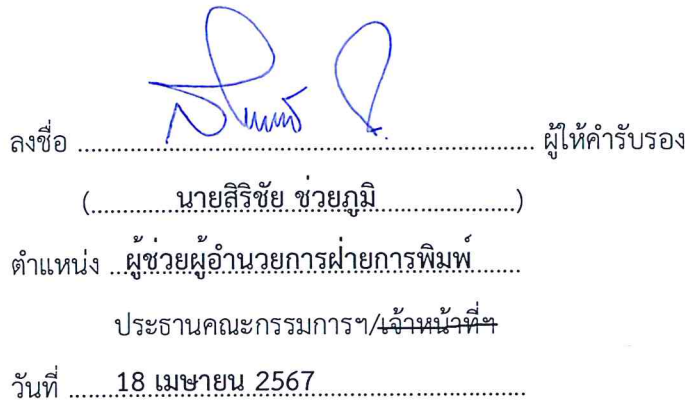 ลงชื่อ ........................................................................ ผู้ให้คำรับรอง
(.............นายสิริชัย ช่วยภูมิ.....................)
ตำแหน่ง ...ผู้ช่วยผู้อำนวยการฝ่ายการพิมพ์.......
ประธานคณะกรรมการฯ/เจ้าหน้าที่ฯ
วันที่ .......18 เมษายน 2567.................................